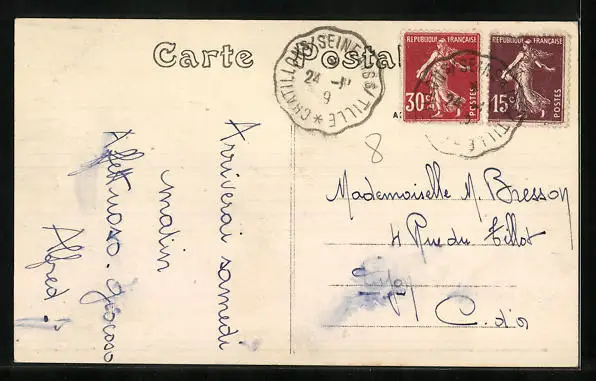 Carte Postale
CHATILLON S/ SEINE
IS S/ TILLE
24
9
REPUBLIQUE FRANÇAISE
30c
POSTES
REPUBLIQUE FRANÇAISE
15c
POSTES
8
Arriverai samedi
matin
Affettuoso. giocoso
Alfred
Mademoiselle M. Bresson
4 Rue du Tillot
C. d'or